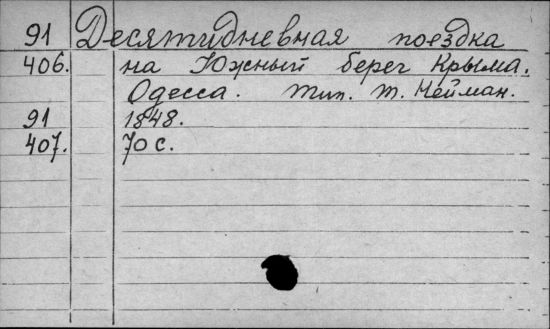 91 Десятидневная поездка
406. на Южный берег Крыма.
Одесса. Тип. Т. Нейман.
91 1848.
407. 70 с.